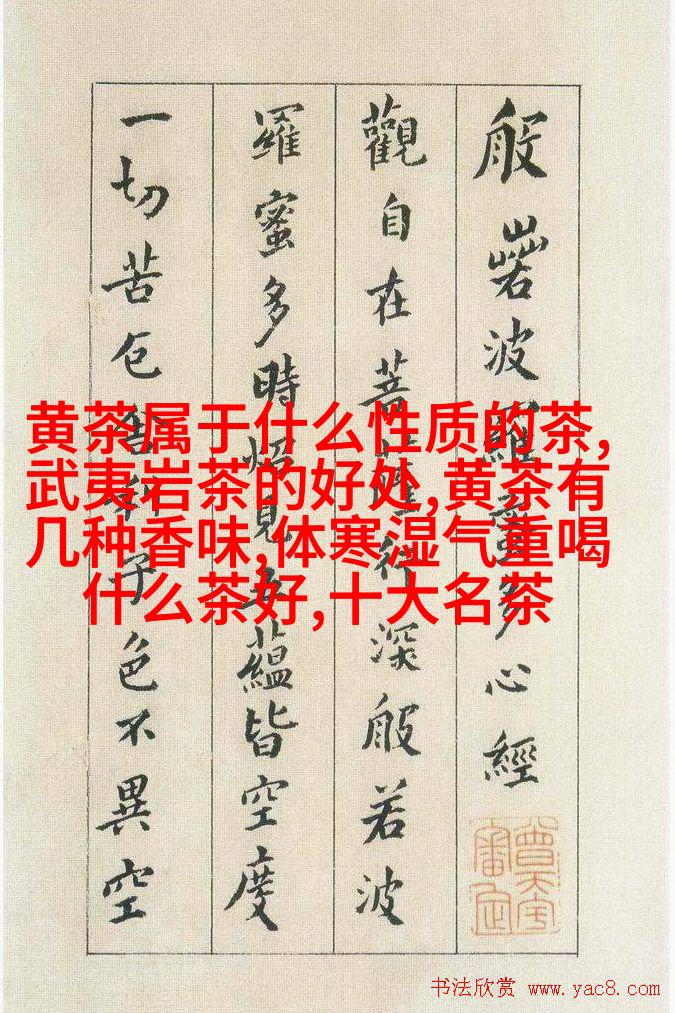 般若波羅蜜多心經
觀自在菩薩行深般若波
羅蜜多時照見五蘊皆空度
一切苦厄舍利子色不異空
黄茶属于什么性质的茶,
武夷岩茶的好处,黄茶有
几种香味,体寒湿气重喝
什么茶好,十大名茶
书法欣赏 www.yac8.com